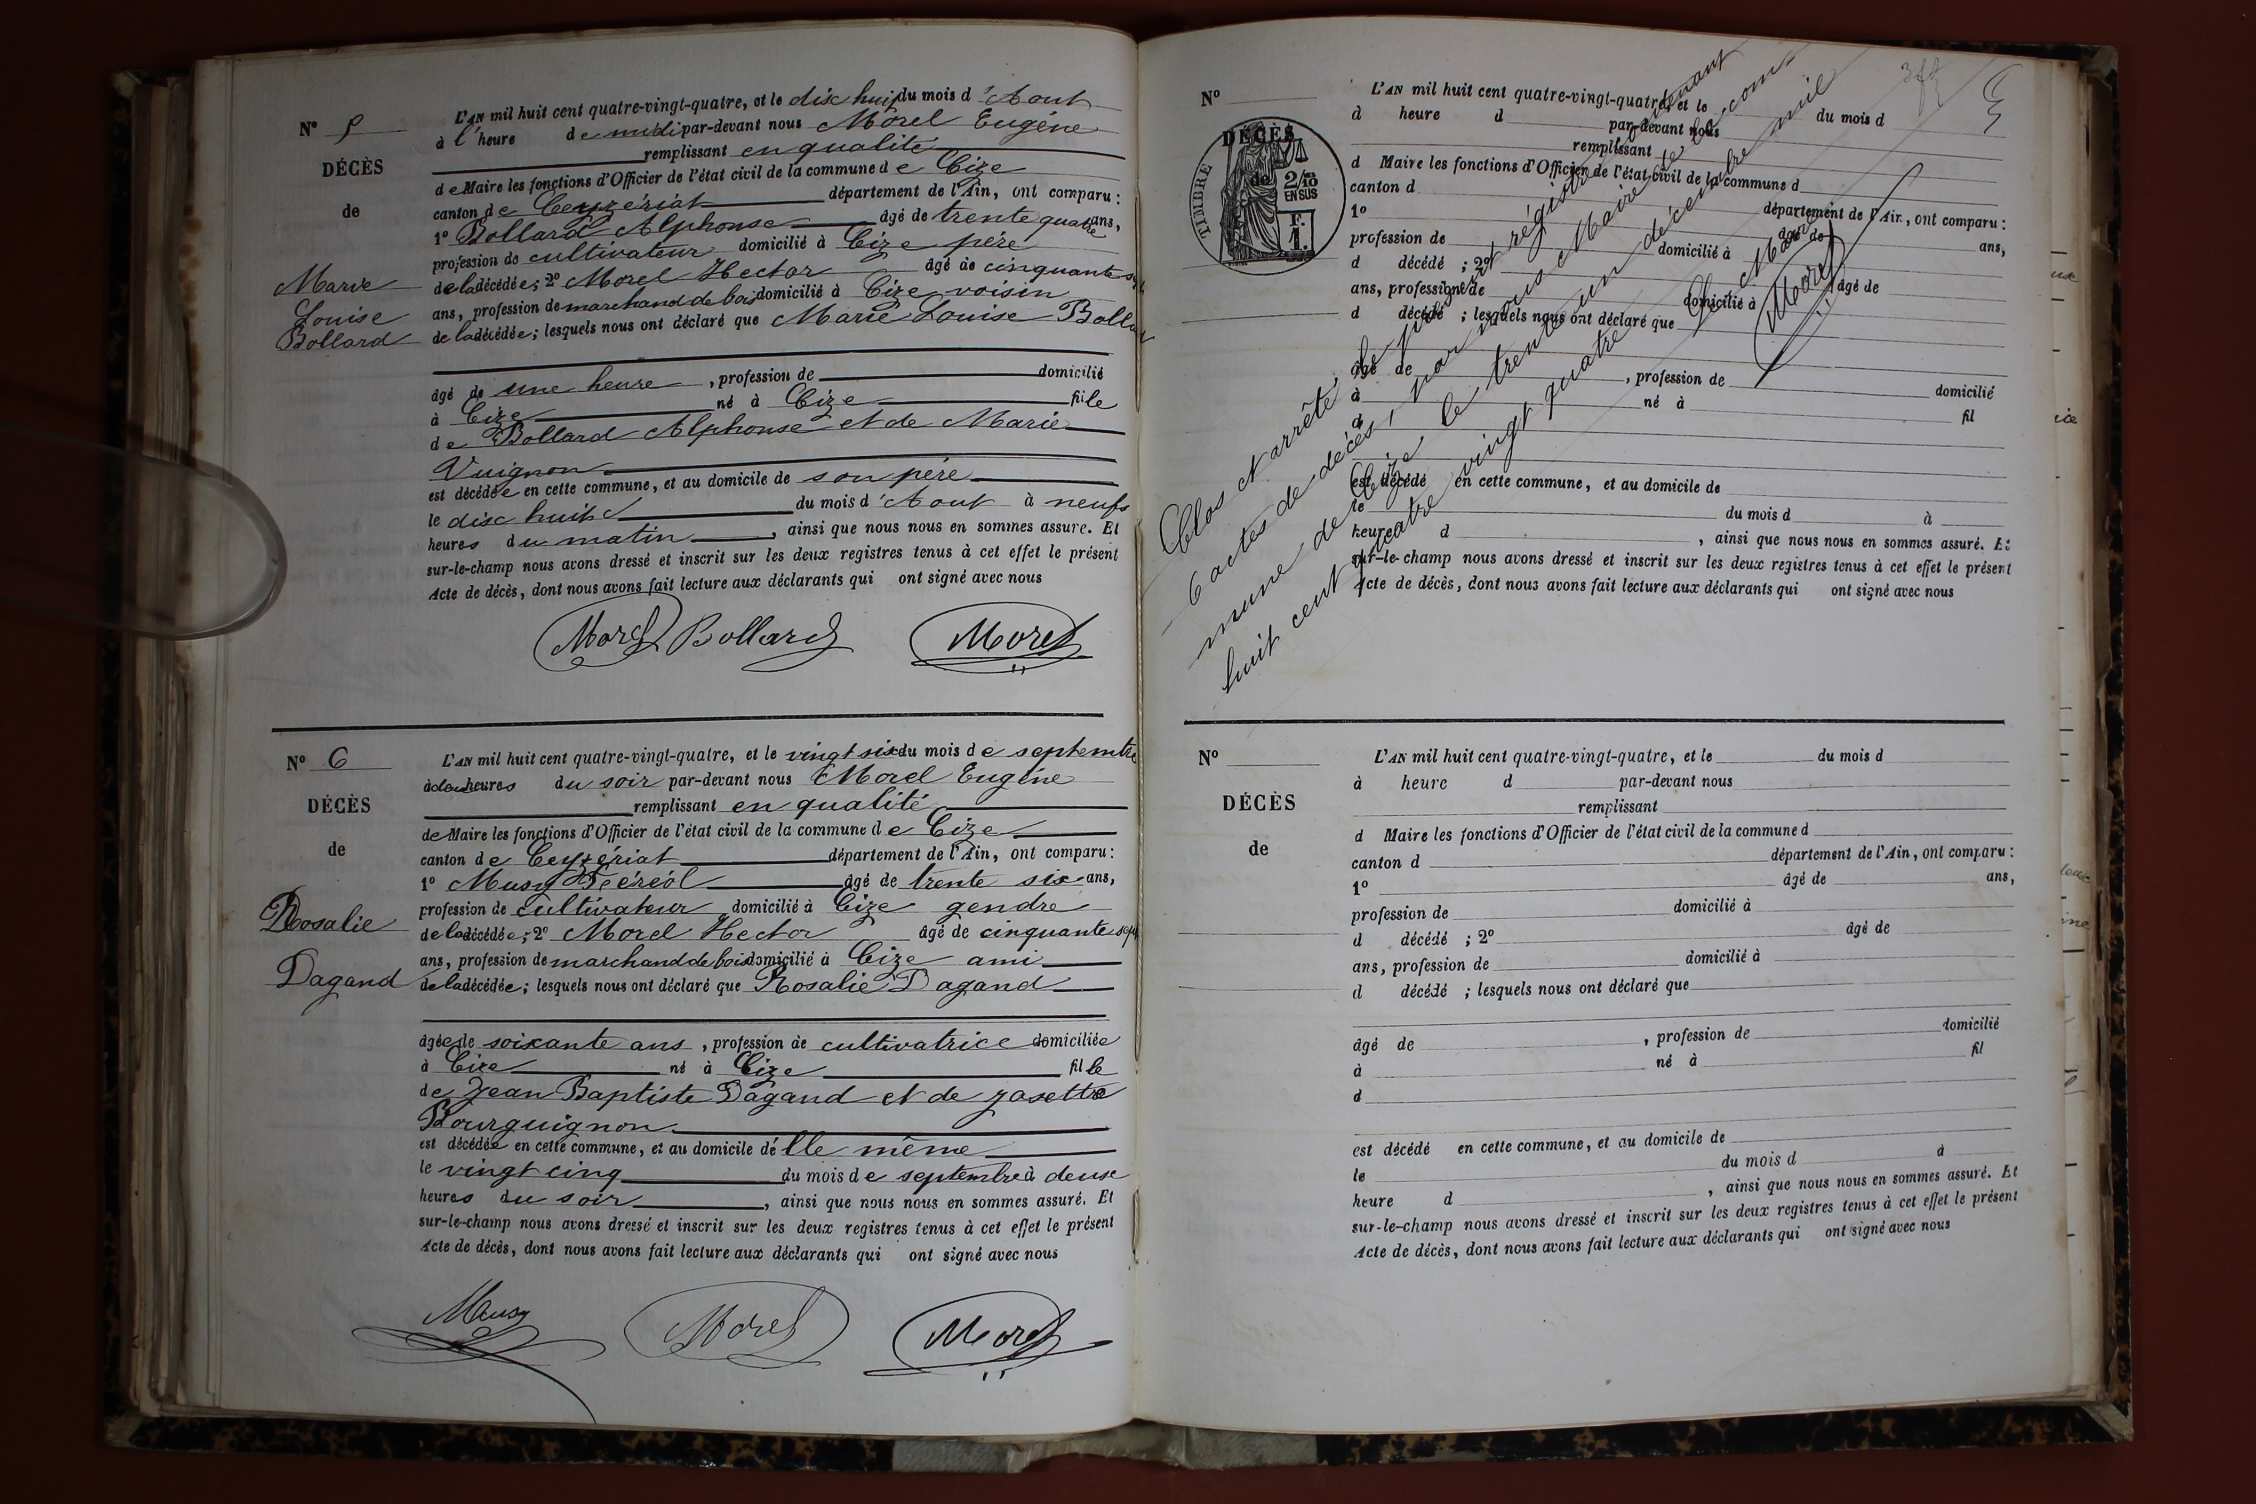 N° 5
DÉCÈS
de
Marie
Louise
Bollard
L'AN mil huit cent quatre-vingt-quatre, et le disc huit du mois d'Aout
à l'heure de midi par-devant nous Morel Eugène
remplissant en qualité
de Maire les fonctions d'Officier de l'état civil de la commune de Cize
canton de Ceyzériat département de l'Ain, ont comparu :
1° Bollard Alphonse âgé de trente quatre ans,
profession de cultivateur domicilié à Cize père
de la décédée; 2° Morel Hector âgé de cinquante sept
ans, profession de marchand de bois domicilié à Cize voisin
de la décédée; lesquels nous ont déclaré que Marie Louise Bollard
âgé de une heure, profession de domicilié
à Cize né à Cize fille
de Bollard Alphonse et de Marie
Vuignon
est décédée en cette commune, et au domicile de son père
le disc huit du mois d'Aout à neufs
heures du matin, ainsi que nous nous en sommes assuré. Et
sur-le-champ nous avons dressé et inscrit sur les deux registres tenus à cet effet le présent
Acte de décès, dont nous avons fait lecture aux déclarants qui ont signé avec nous
Morel Bollard Morel
N° 6
DÉCÈS
de
Rosalie
Dagand
L'AN mil huit cent quatre-vingt-quatre, et le vingt six du mois de septembre
à deux heures du soir par-devant nous Morel Eugène
remplissant en qualité
de Maire les fonctions d'Officier de l'état civil de la commune de Cize
canton de Ceyzériat département de l'Ain, ont comparu :
1° Musy Féréol âgé de trente six ans,
profession de cultivateur domicilié à Cize gendre
de la décédée; 2° Morel Hector âgé de cinquante sept
ans, profession de marchand de bois domicilié à Cize ami
de la décédée; lesquels nous ont déclaré que Rosalie Dagand
âgée de soixante ans, profession de cultivatrice domiciliée
à Cize né à Cize fille
de Jean Baptiste Dagand et de Josette
Bourguignon
est décédée en cette commune, et au domicile d'élle même
le vingt cinq du mois de septembre à deuse
heures du soir, ainsi que nous nous en sommes assuré. Et
sur-le-champ nous avons dressé et inscrit sur les deux registres tenus à cet effet le présent
Acte de décès, dont nous avons fait lecture aux déclarants qui ont signé avec nous
Musy Morel Morel
N°
DÉCÈS
de
TIMBRE
2/10
EN SUS
F.
1.
L'AN mil huit cent quatre-vingt-quatre, et le du mois d
à heure d par-devant nous
remplissant
d Maire les fonctions d'Officier de l'état civil de la commune d
canton d département de l'Ain, ont comparu :
1° âgé de ans,
profession de domicilié à
d décédé ; 2° âgé de
ans, profession de domicilié à
d décédé ; lesquels nous ont déclaré que
âgé de , profession de domicilié
à né à fil
d
est décédé en cette commune, et au domicile de
le du mois d à
heure d , ainsi que nous nous en sommes assuré. Et
sur-le-champ nous avons dressé et inscrit sur les deux registres tenus à cet effet le présent
Acte de décès, dont nous avons fait lecture aux déclarants qui ont signé avec nous
Clos et arrêté, le présent régistre contenant
6 actes de décès, par nous Maire de la com-
mune de Cize le trente un décembre mil
huit cent quatre vingt quatre
Le Maire
Morel
N°
DÉCÈS
de
L'AN mil huit cent quatre-vingt-quatre, et le du mois d
à heure d par-devant nous
remplissant
d Maire les fonctions d'Officier de l'état civil de la commune d
canton d département de l'Ain, ont comparu :
1° âgé de ans,
profession de domicilié à
d décédé ; 2° âgé de
ans, profession de domicilié à
d décédé ; lesquels nous ont déclaré que
âgé de , profession de domicilié
à né à fil
d
est décédé en cette commune, et au domicile de
le du mois d à
heure d , ainsi que nous nous en sommes assuré. Et
sur-le-champ nous avons dressé et inscrit sur les deux registres tenus à cet effet le présent
Acte de décès, dont nous avons fait lecture aux déclarants qui ont signé avec nous